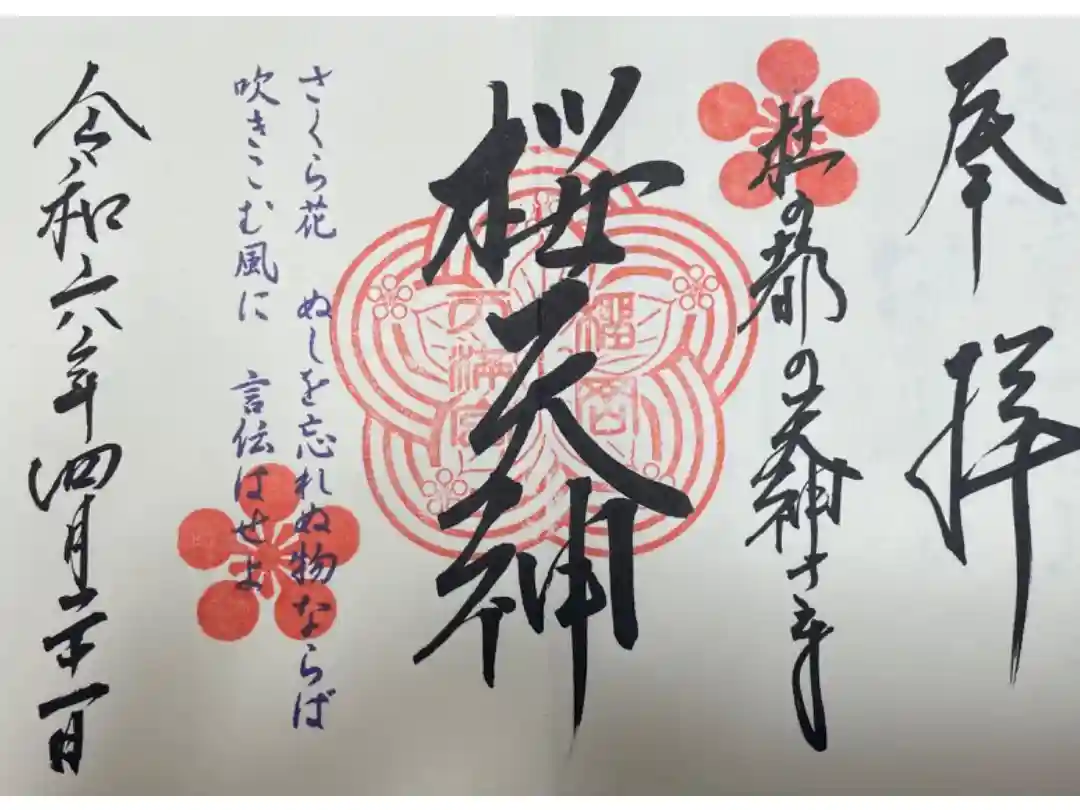 奉拝
杜の都の天神さま
桜天神
榴岡
天満宮
さくら花　ぬしを忘れぬ物ならば
吹きこむ風に　言伝はせよ
令和六年四月二十一日